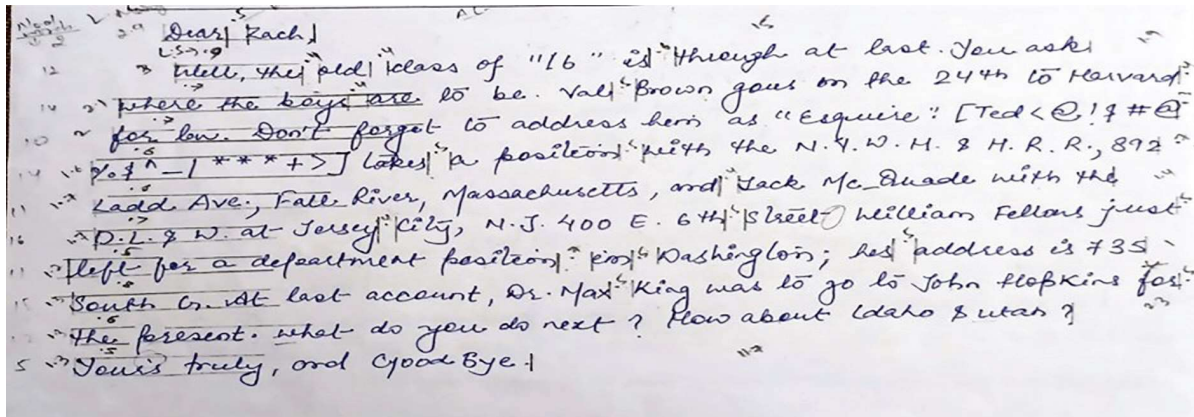 Dear Zach,
Well, the old class of "16" is through at last. You ask
where the boys are to be. Vall Brown goes on the 24th to Harvard
for law. Don't forget to address him as "Esquire". [Ted<@!$#@
%$^_|***+>] takes a position with the N.Y.N.H. & H.R.R., 892
Ladd Ave., Fall River, Massachusetts, and Jack Mc_Quade with the
D.L. & W. at Jersey City, N.J. 400 E. 6th Street William Fellows just
left for a department position in Washington; his address is 735
South G. At last account, Dr. Max King was to go to John Hopkins for
the present. What do you do next? How about Idaho & utah?
Yours truly, and Good Bye.